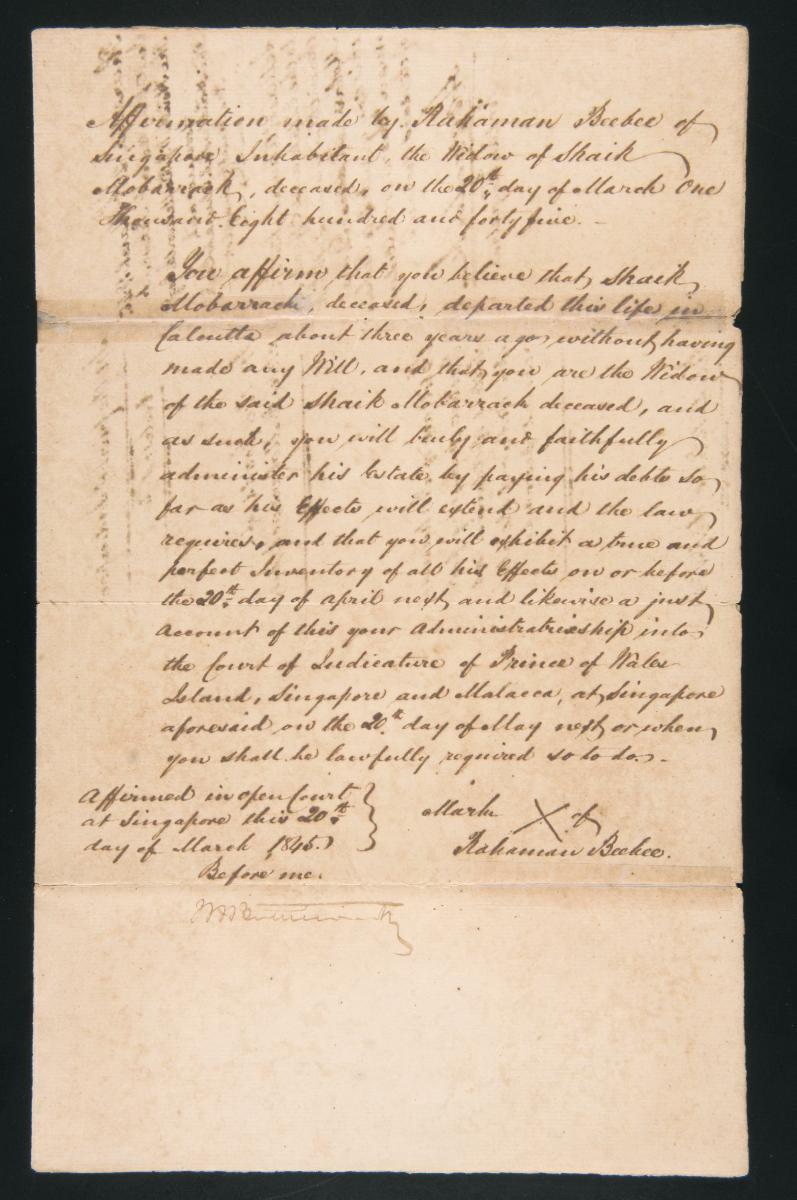 Affirmation made by Rahaman Beebee of
Singapore Inhabitant, the Widow of Shaik
Mobarrack, deceased, on the 20th day of March One
Thousand Eight hundred and forty five. –
You affirm that you believe that Shaik
Mobarrack, deceased, departed this life in
Calcutta about three years ago without having
made any Will, and that you are the Widow
of the said Shaik Mobarrack deceased, and
as such, you will truly and faithfully
administer his Estate by paying his debts so
far as his Effects will extend and the law
requires, and that you will exhibit a true and
perfect Inventory of all his Effects on or before
the 20th day of April next, and likewise a just
account of this your administratrixship into
the Court of Judicature of Prince of Wales
Island, Singapore and Malacca, at Singapore
aforesaid on the 20th day of May next or when
you shall be lawfully required so to do. –
Affirmed in open Court
at Singapore this 20th
day of March 1845.
Mark X of
Rahaman Beebee.
Before me.